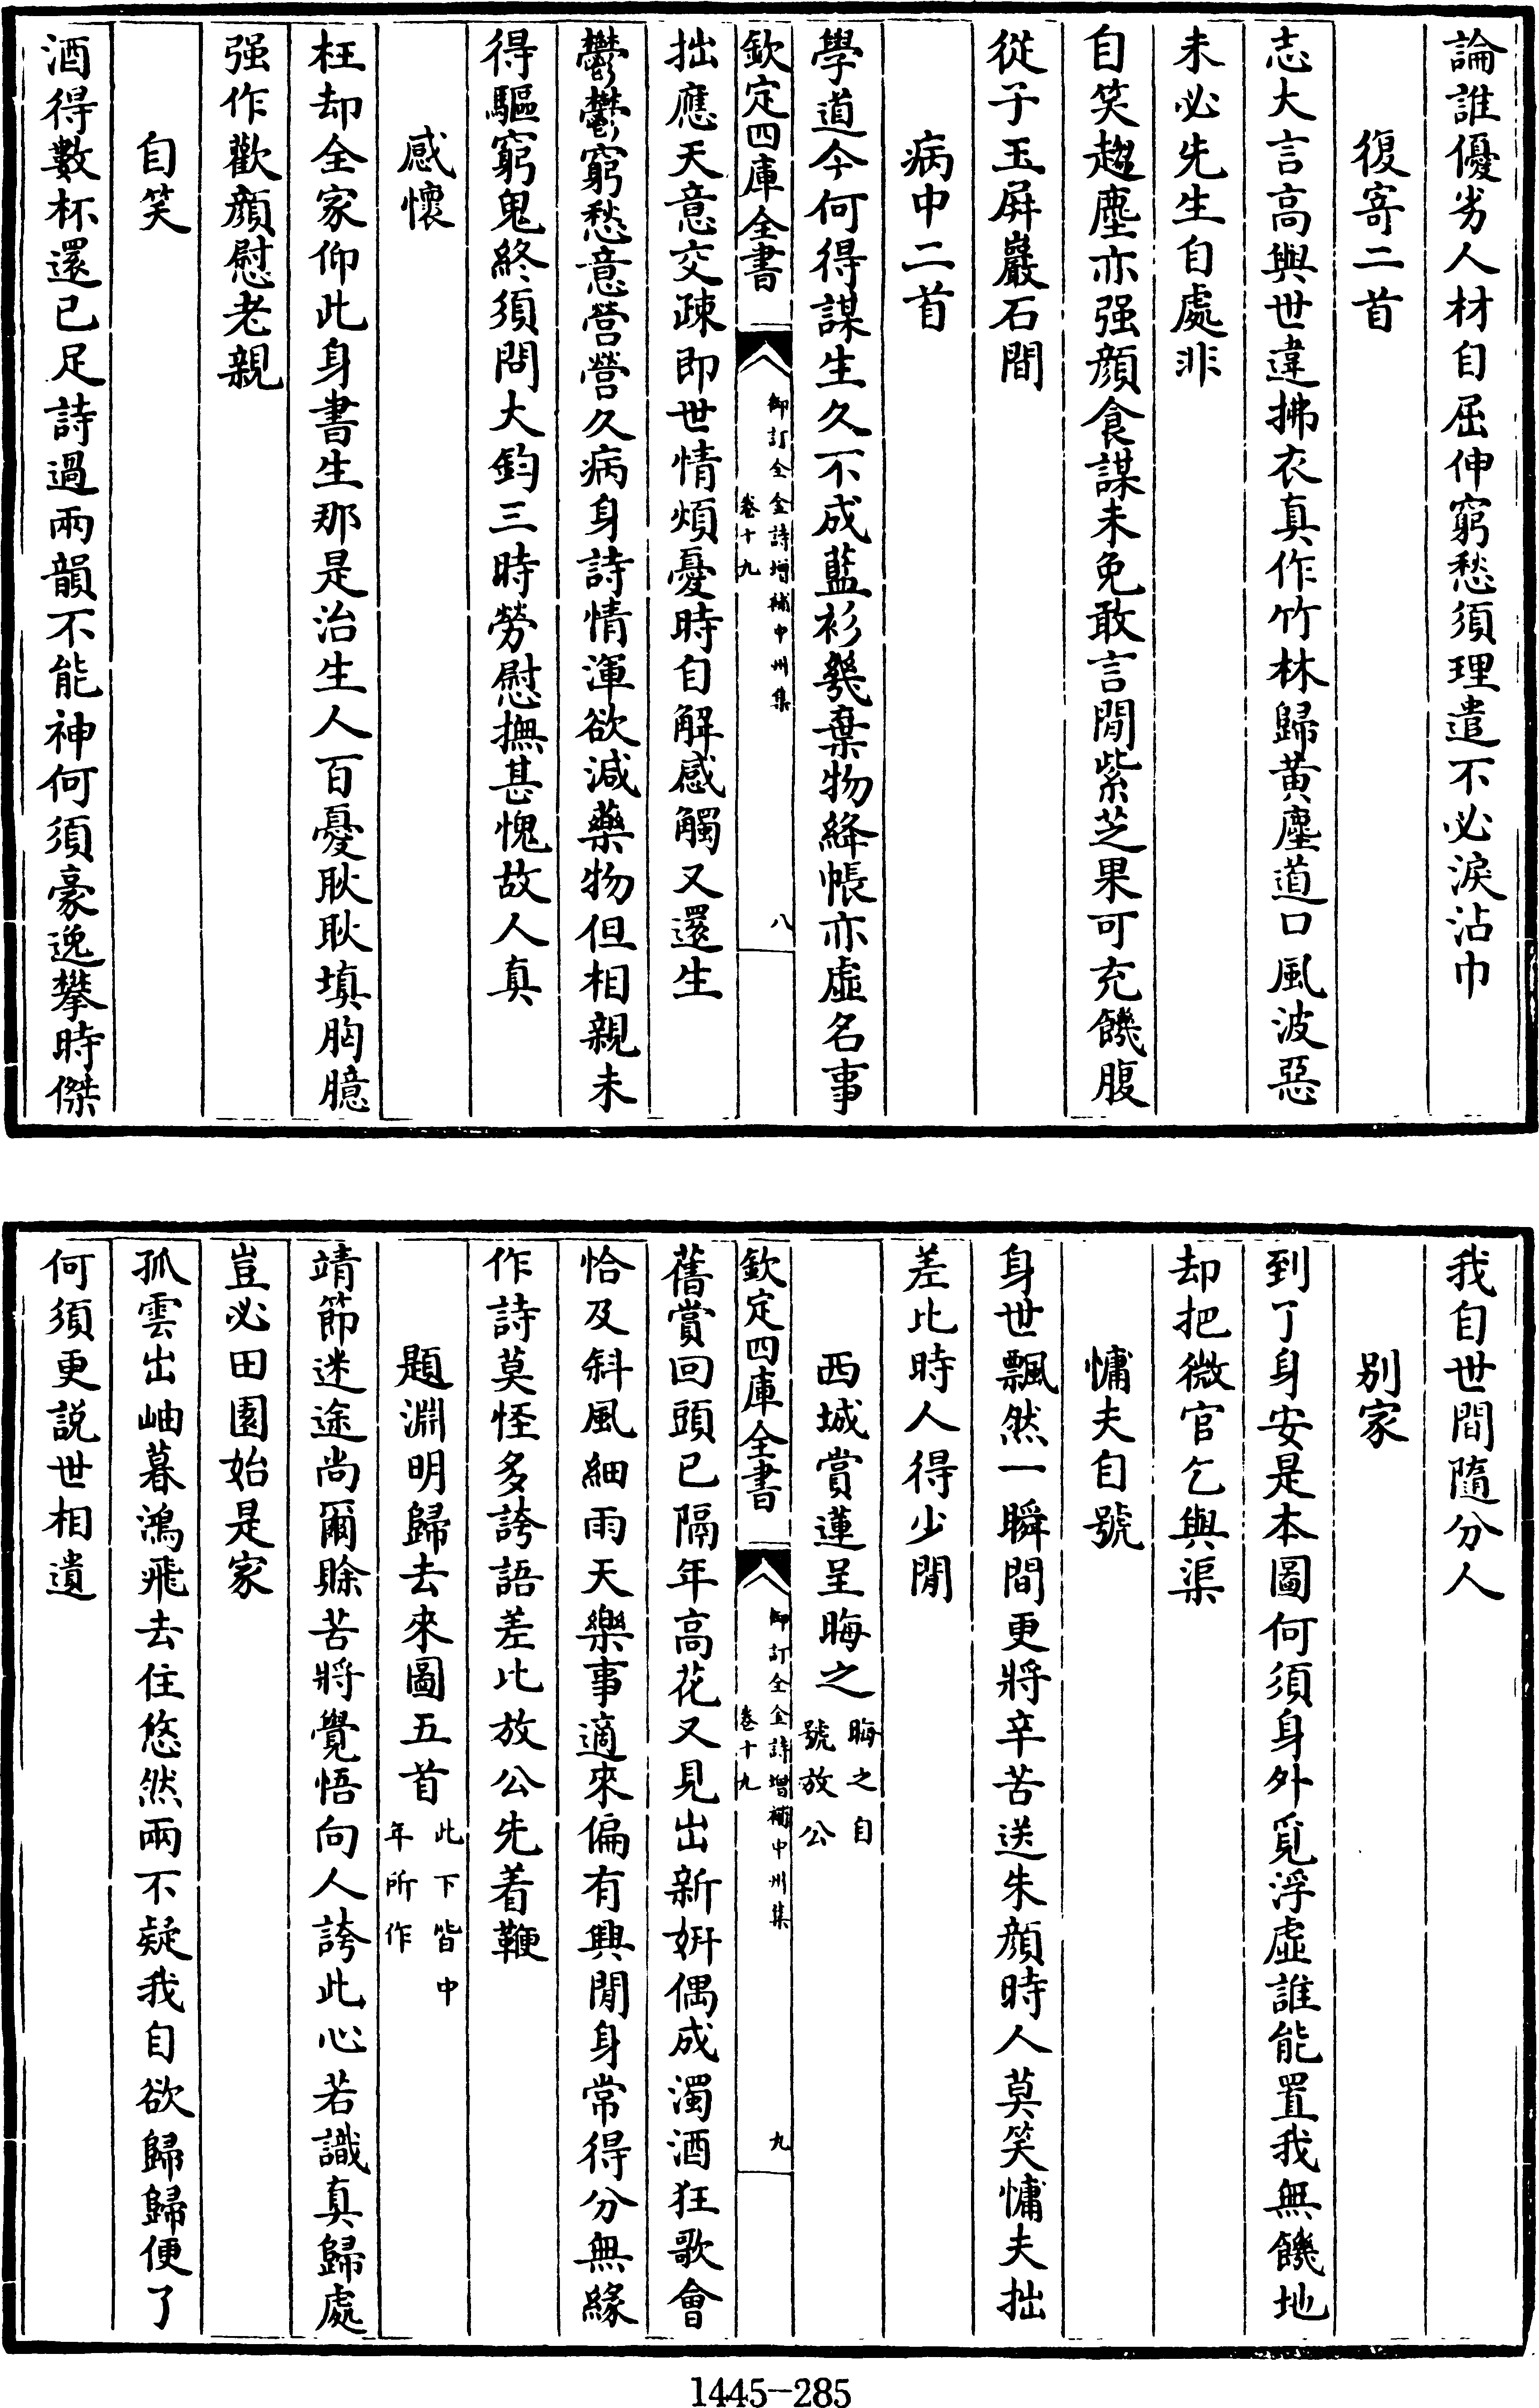 論誰優劣人材自屈伸窮愁須理遣不必淚沾巾
復寄二首
志大言高與世違拂衣真作竹林歸黄塵道口風波惡
未必先生自處非
自笑趨塵亦强顔食謀未免敢言閒紫芝果可充饑腹
從子玉屏巖石間
病中二首
學道今何得謀生久不成藍衫幾棄物絳帳亦虛名事
欽定四庫全書
御訂全金詩增補中州集
卷十九
八
拙應天意交疎即世情煩憂時自解感觸又還生
鬱鬱窮愁意營營久病身詩情渾欲減藥物但相親未
得驅窮鬼終須問大鈞三時勞慰撫甚愧故人真
感懷
枉却全家仰此身書生那是治生人百憂耿耿填胸臆
强作歡顔慰老親
自笑
酒得數杯還已足詩過兩韻不能神何須豪逸攀時傑
我自世間隨分人
別家
到了身安是本圖何須身外覓浮虛誰能置我無饑地
却把微官乞與渠
慵夫自號
身世飄然一瞬間更將辛苦送朱顔時人莫笑慵夫拙
差比時人得少閒
西城賞蓮呈晦之晦之自號放公
欽定四庫全書
御訂全金詩增補中州集
卷十九
九
舊賞回頭已隔年高花又見出新妍偶成濁酒狂歌會
恰及斜風細雨天樂事適來偏有興閒身常得分無緣
作詩莫怪多誇語差比放公先着鞭
題淵明歸去來圖五首此下皆中年所作
靖節迷途尚爾賒苦將覺悟向人誇此心若識真歸處
豈必田園始是家
孤雲出岫暮鴻飛去住悠然兩不疑我自欲歸歸便了
何須更説世相遺
1445-285